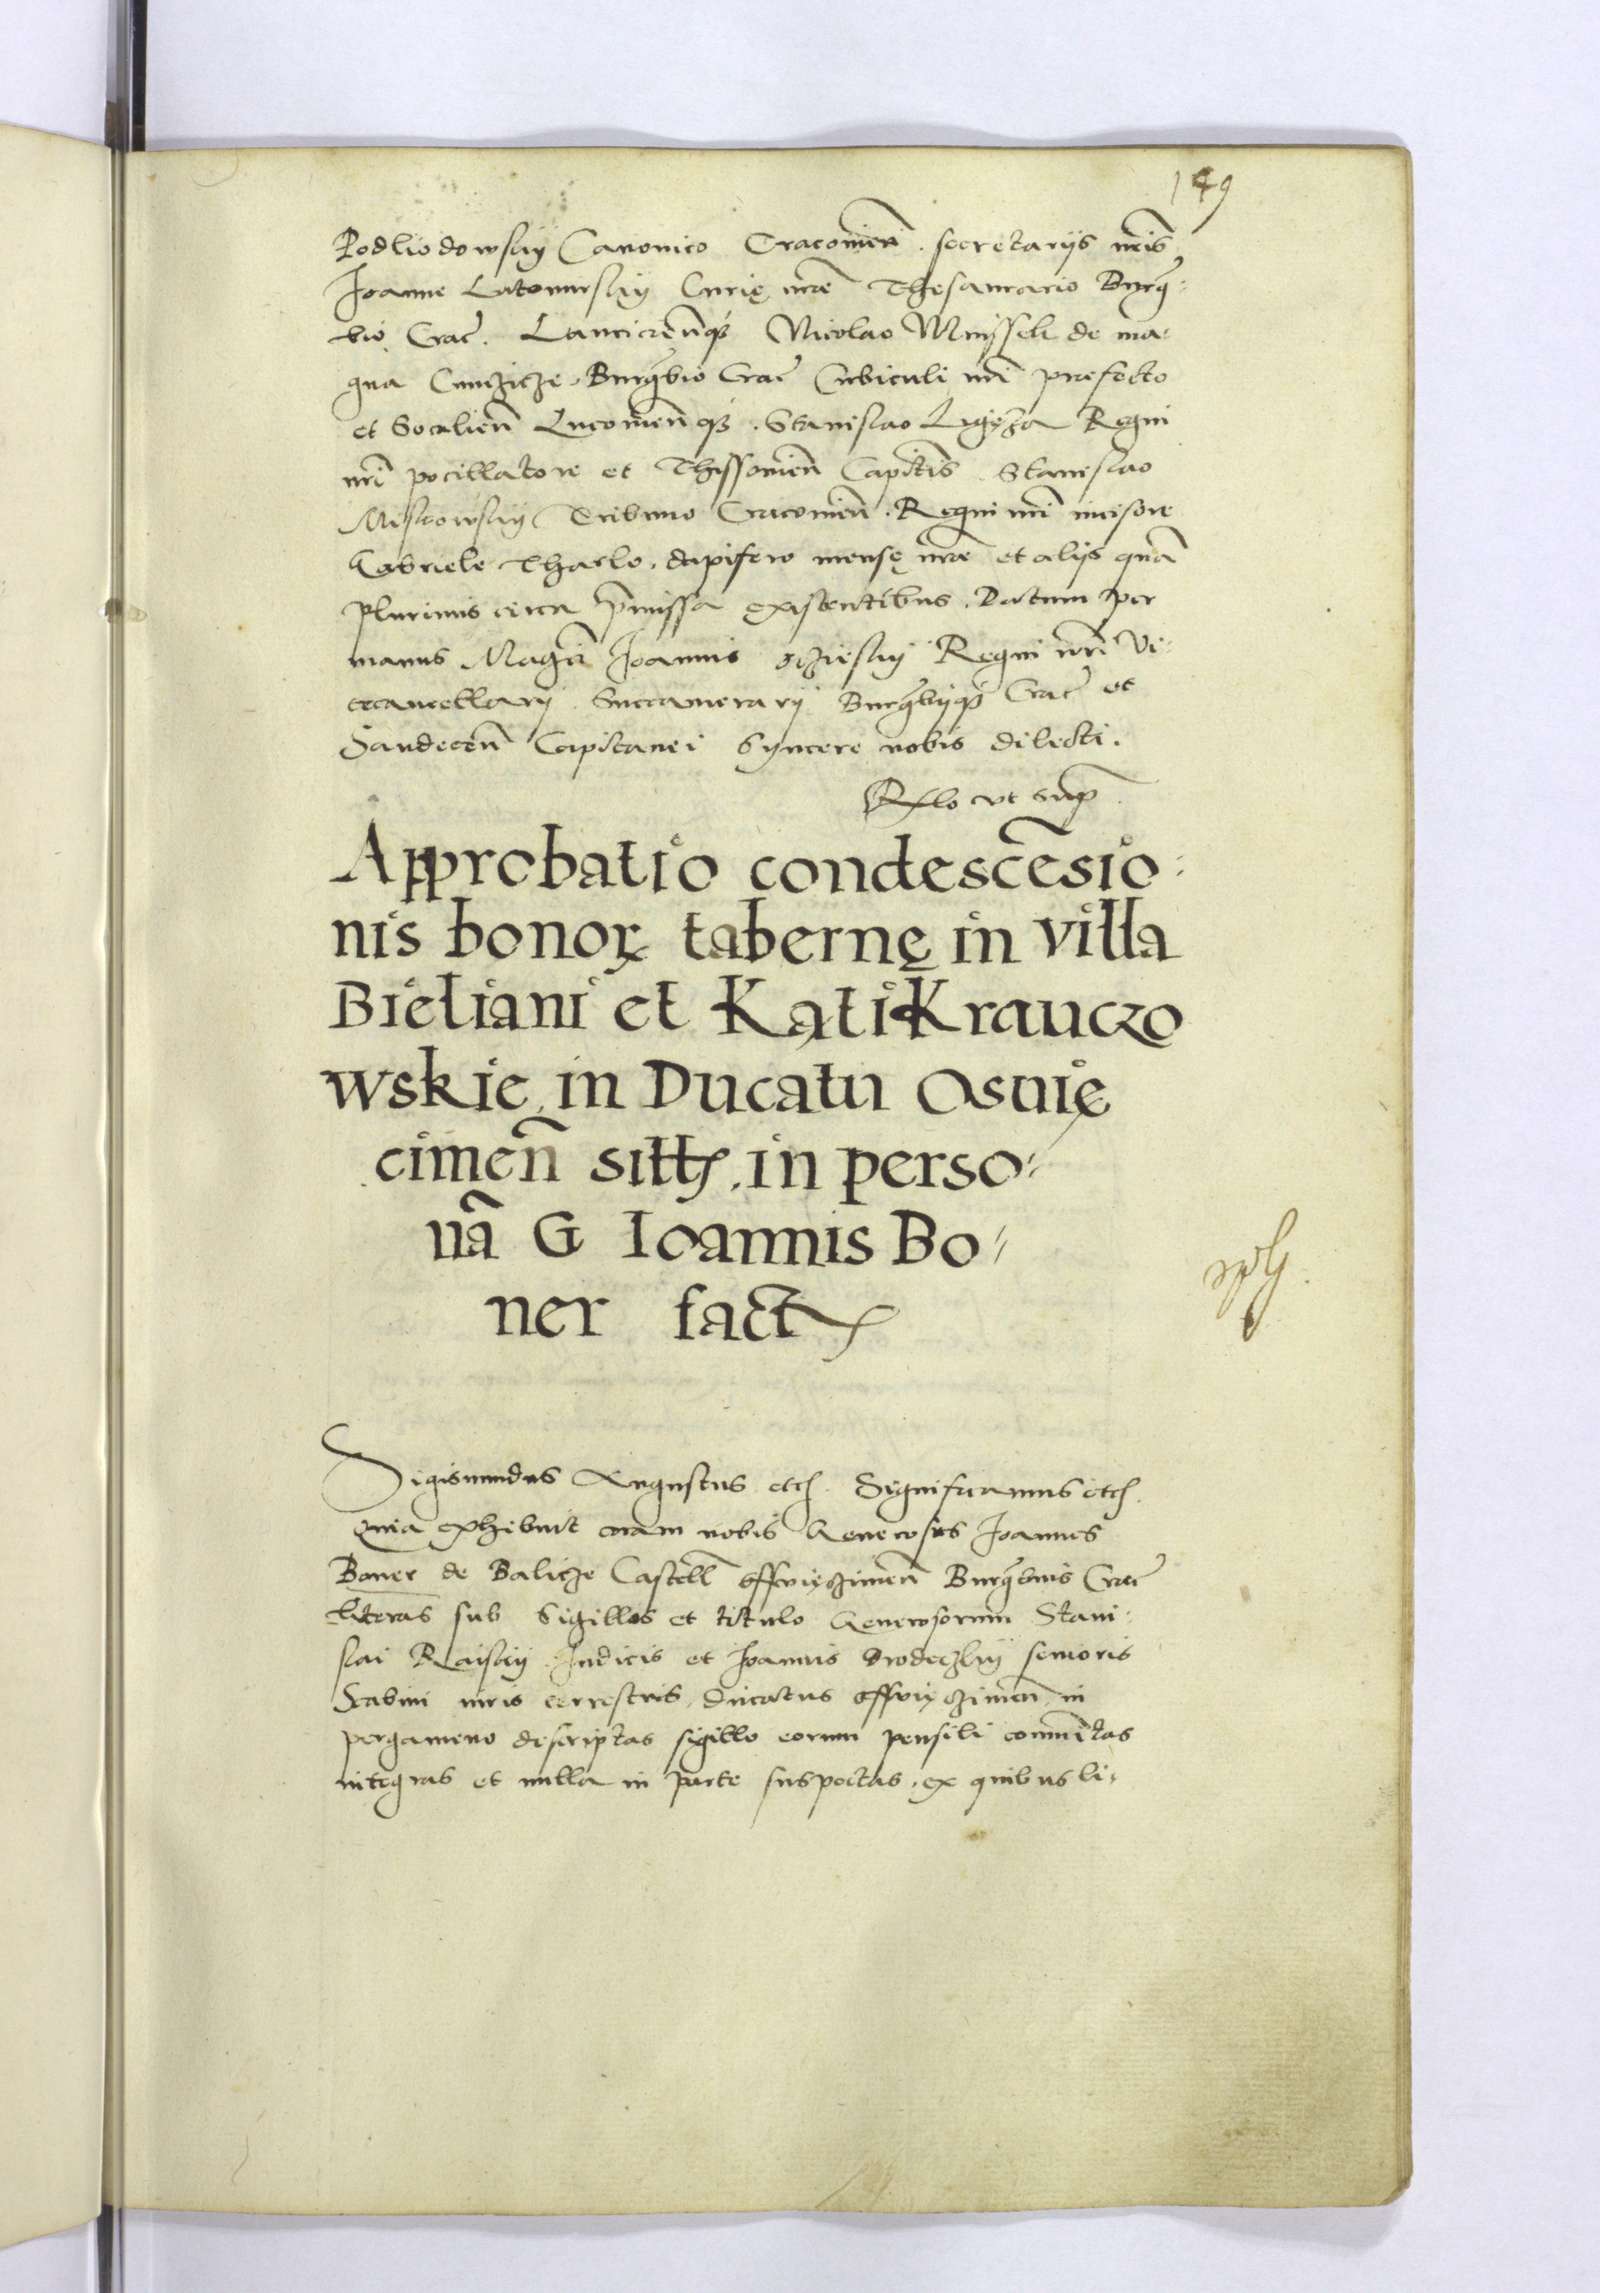 149
Podliodowskij Canonico Cracovien̄. secretarijs nr̄is
Joanne Lutomirskij Curię nr̄ę Thesaurario Burg̃
bio Crac̃. Lanciciēnq́ꝫ Nicolao Mijsseli de ma-
gna Cunczicze. Burg̃bio Crac̃ Cubiculi nr̄i prefecto
et Socalien̄ Lucovien̄qꝫ. Stanislao Ligęza Regni
nr̄i pocillatore et Thissovien̄ Capitn̄s. Stanislao
Miskowskij Tribuno Cracovien̄. Regni nr̄i incisore
Gabriele Tharlo. dapifero mensę nr̄ę et alijs quā
plurimis circa p̄missa existentibus. Datum per
manus Magcī Joannis Oczieskij Regni nr̄i Vi-
cecancellarij. Succamerarij Burg̃bijq́ꝫ Crac̃ et
Sandecen̄ Capitanei Syncere nobis dilecti.
Rlo ut sup̄.
Approbatio condescēsio-
nis bonoꝝ tabernę in villa
Bieliani et Kąti Krauczo
wskie, in Ducatu Osvię
cimen̄ sitt, in perso-
nā G Ioannis Bo-
ner fact
Sigismundus Augustus etc. Significamus etc.
quia exhibuit coram nobis Generosus Joannes
Boner de Balicze Castell̄ Osswięczimen̄ Burg̃bius Crac̃
literas sub Sigillis et titulo Generosorum Stani-
slai Raiskij Judicis et Joannis Brodeczkij senioris
Scabini iuris terrestris, ducatus Osswięczimen̄ in
pergameno descriptas sigillo eorum pensili com̄unitas
integras et nulla in parte suspectas. ex quibus li-